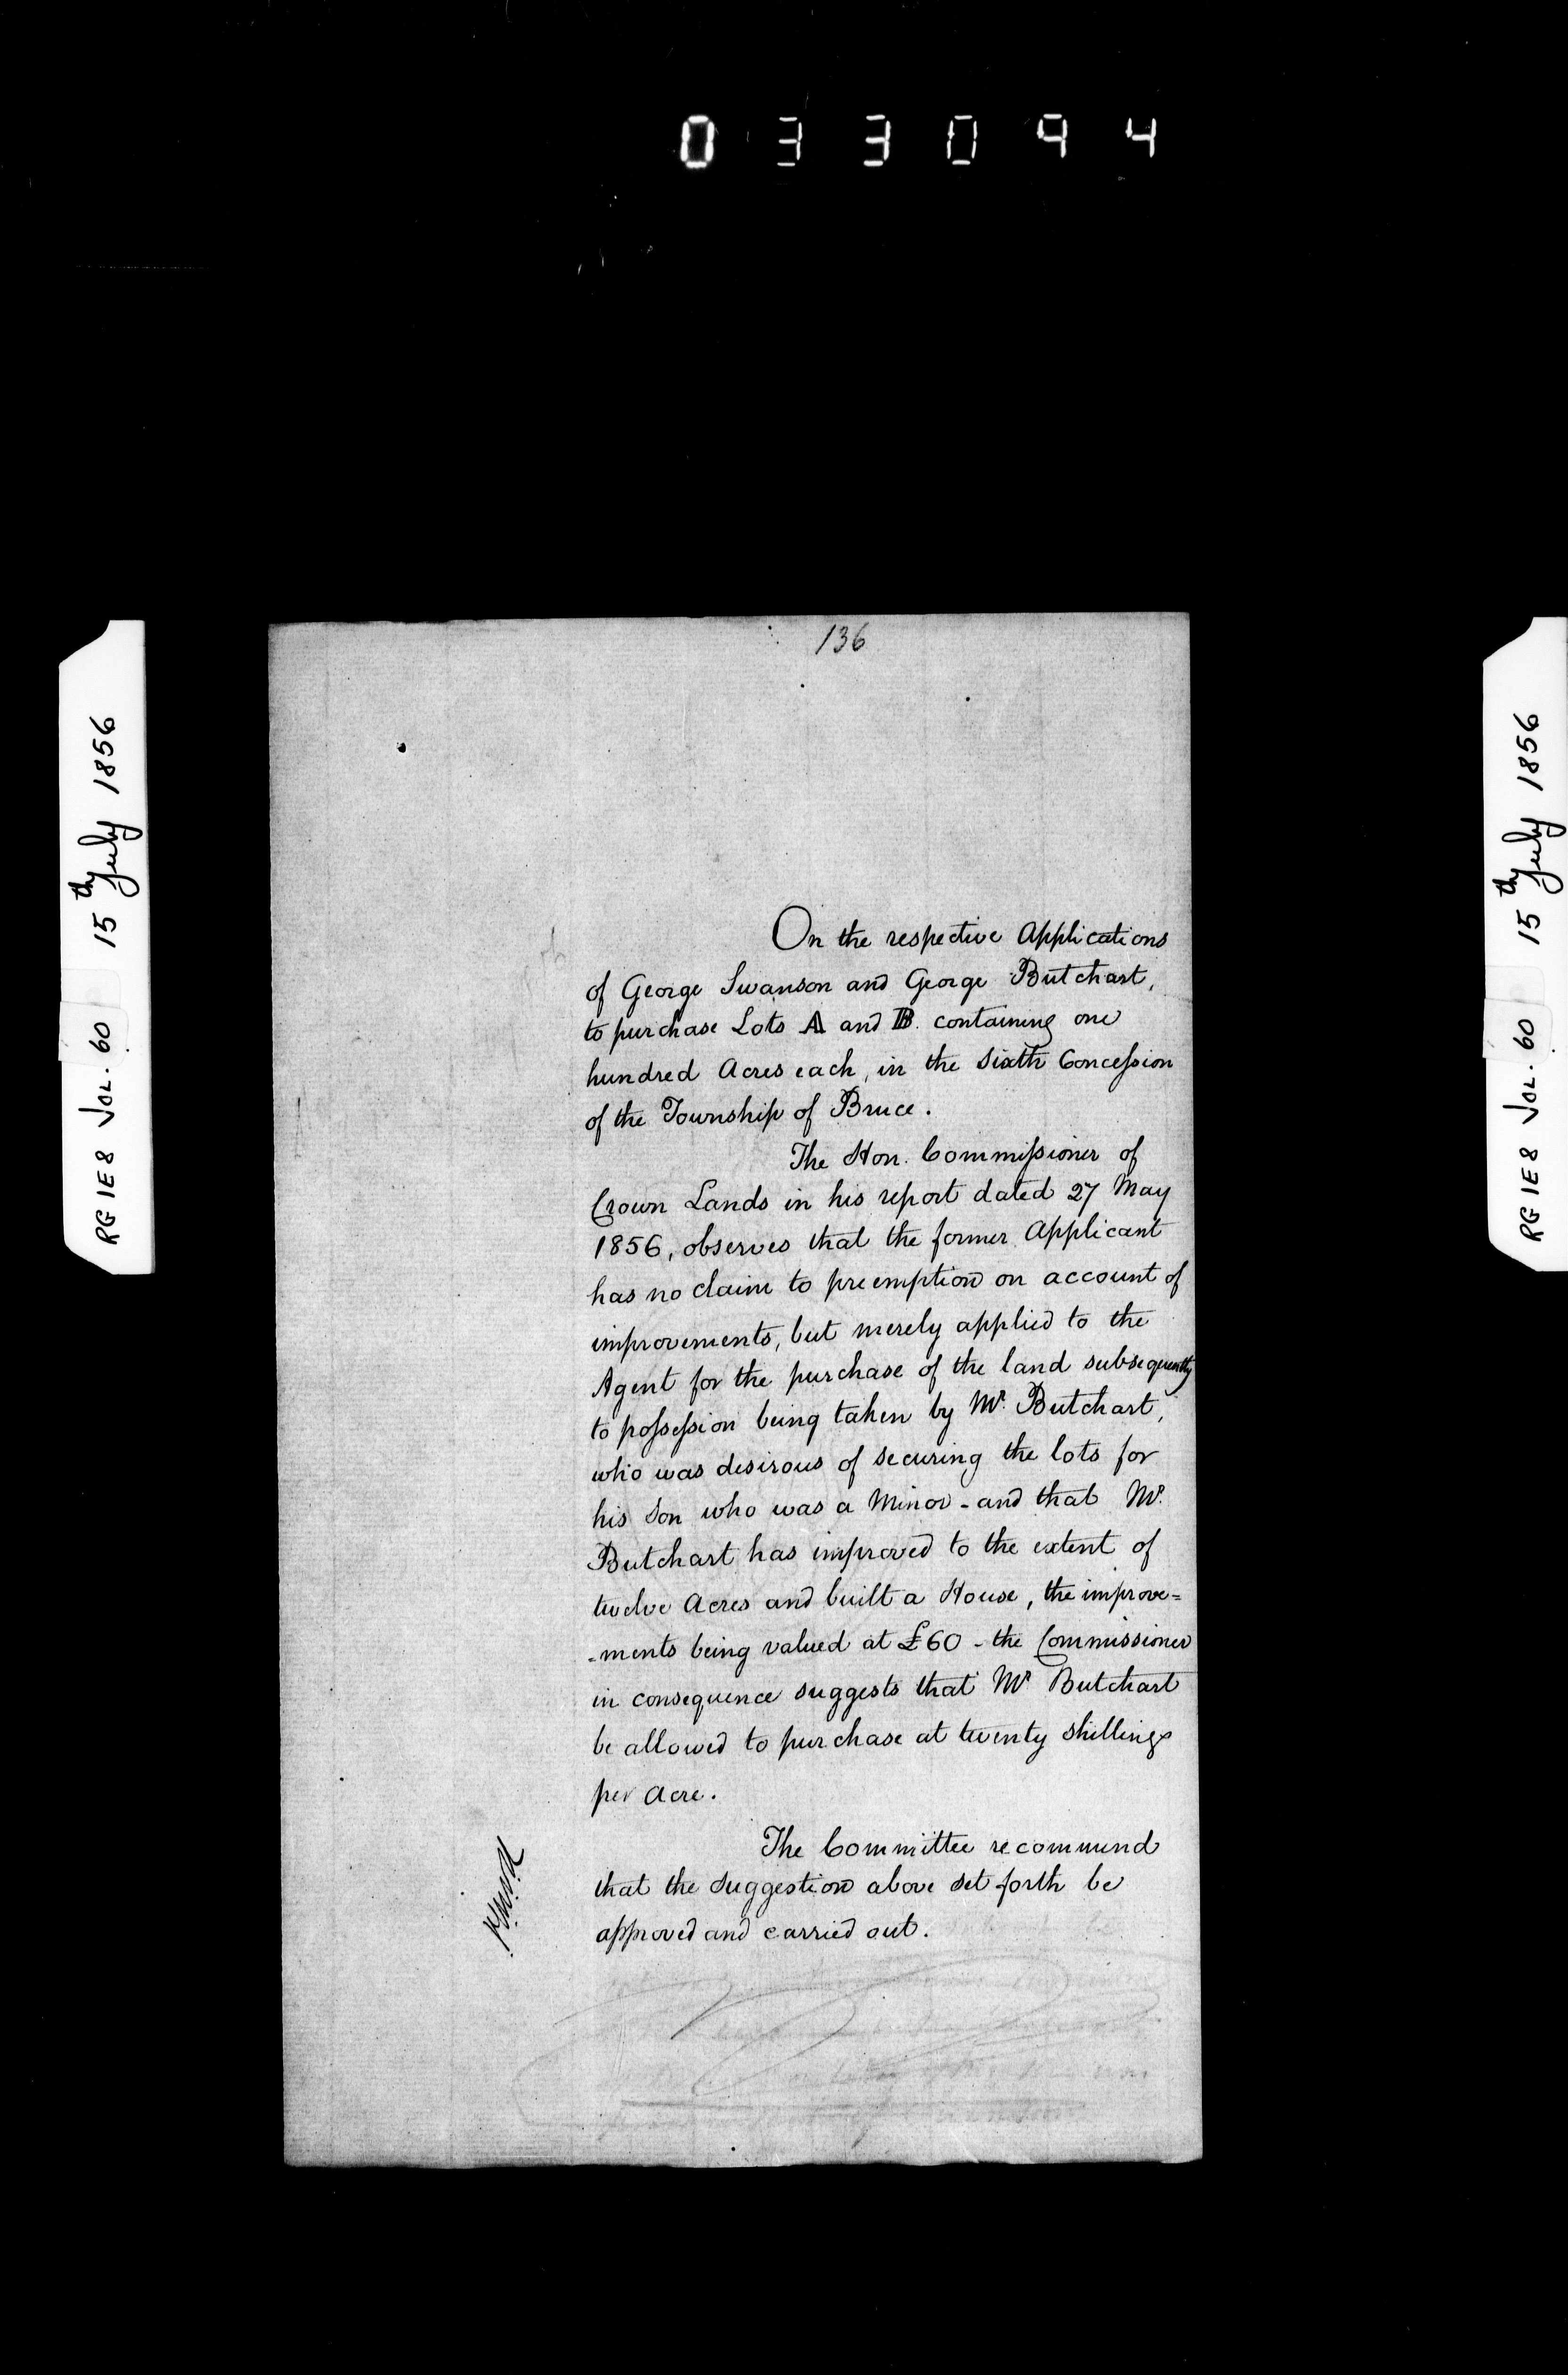 033094
136
RG 1E8 VOL. 60 15th July 1856
RG 1E8 VOL. 60 15th July 1856
On the respective Applications
of George Swanson and George Butchart,
to purchase Lots A and B. containing one
hundred Acres each, in the Sixth Concession
of the Township of Bruce.
The Hon. Commissioner of
Crown Lands in his report dated 27 May
1856, observes that the former Applicant
has no claim to preemption on account of
improvements, but merely applied to the
Agent for the purchase of the land subsequently
to possession being taken by Mr. Butchart,
who was desirous of securing the lots for
his Son who was a Minor - and that Mr.
Butchart has improved to the extent of
twelve Acres and built a House, the improve=
-ments being valued at £60 - the Commissioner
in consequence suggests that Mr Butchart
be allowed to purchase at twenty shillings
per Acre.
The Committee recommend
that the suggestion above set forth be
approved and carried out.